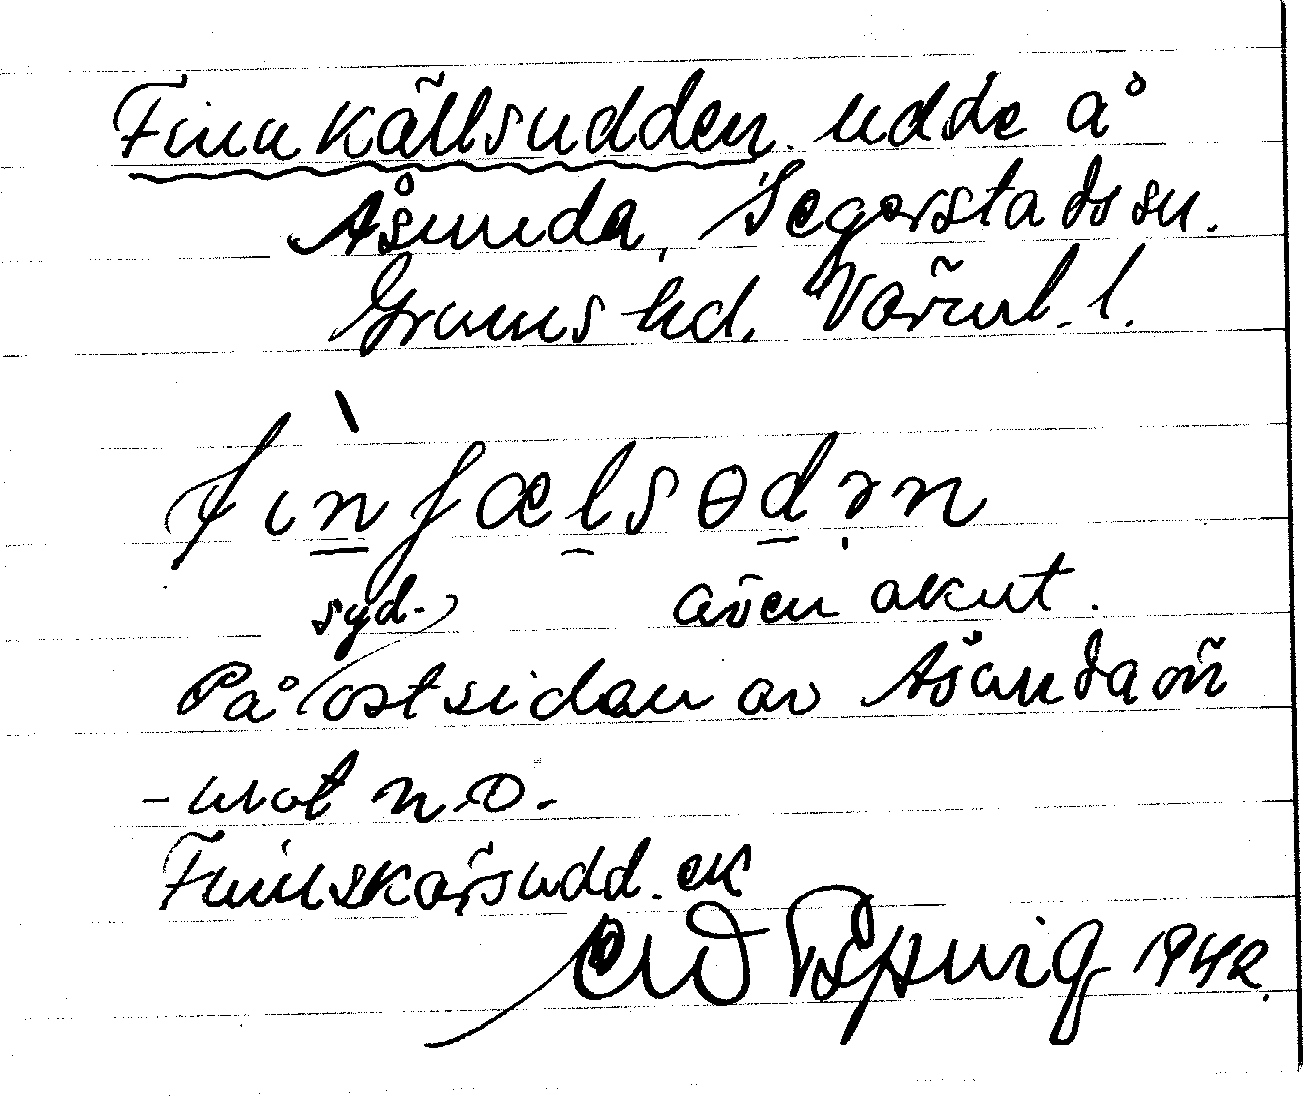 Finnkällsudden udde å
Åsunda, Segerstads sn.
Grums hd. Värml. l.
fınʃælsɵdən
syd-
även akut.
På ostsidan av Åsundaön
- mot n.o.
Finnskärsudd.en
1942.